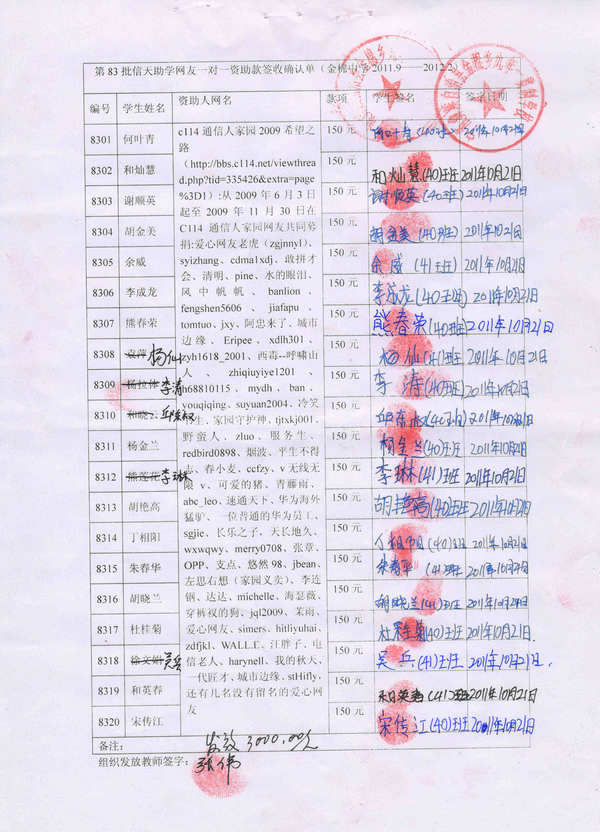 第 83 批信天助学网友一对一资助款签收确认单（金棉中学 2011.9——2012.2）
编号 学生姓名 资助人网名 款项 学生签名 签字日期
8301 何叶青 150 元 2011年10月21日
8302 和灿慧 150 元 和灿慧(40)班 2011年10月21日
8303 谢顺英 150 元 谢顺英(40班) 2011年10月21日
8304 胡金美 150 元 胡金美(40班) 2011年10月21日
8305 余威 150 元 余威(41)班 2011年10月21日
8306 李成龙 150 元 李成龙(40)班 2011年10月21日
8307 熊春荣 150 元 熊春荣(40)班 2011年10月21日
8308 杨仙 150 元 杨仙(41)班 2011年10月21日
8309 李涛 150 元 李涛(40)班 2011年10月21日
8310 150 元 2011年10月21日
8311 杨金兰 150 元 杨金兰(40)班 2011年10月21日
8312 熊莲花 李琳 150 元 李琳(41)班 2011年10月21日
8313 胡艳高 150 元 胡艳高(40)班 2011年10月21日
8314 丁相阳 150 元 (40)班 2011年10月21日
8315 朱春华 150 元 朱春华(41)班 2011年10月21日
8316 胡晓兰 150 元 胡晓兰(41)班 2011年10月21日
8317 杜桂菊 150 元 杜桂菊(40)班 2011年10月21日
8318 徐文娟 吴兵 150 元 吴兵(41)班 2011年10月21日
8319 和英春 150 元 和英春(41)班 2011年10月21日
8320 宋传江 150 元 宋传江(40)班 2011年10月21日
c114 通信人家园 2009 希望之
路
（http://bbs.c114.net/viewthre
ad.php?tid=335426&extra=page
%3D1）:从 2009 年 6 月 3 日
起至 2009 年 11 月 30 日在
C114 通信人家园网友共同募
捐:爱心网友老虎（zgjnnyl）、
syizhang、cdma1xdj、敢拼才
会、清明、pine、水的眼泪、
风中帆帆、banlion、
fengshen5606、jiafapu、
tomtuo、jxy、阿忠来了、城市
边缘、Eripee、xdlh301、
zyh1618_2001、西毒--呼啸山
人、zhiqiuyiye1201、
h6880115、mydh、ban、
youqiqing、suyuan2004、冷笑
书生、家园守护神、tjtxkj001、
野蛮人、zluo、服务生、
redbird0898、烟波、平生不得
志、春小麦、ccfzy、v 无线无
限 v、可爱的猪、青藤雨、
abc_leo、速通天下、华为海外
猛驴、一位普通的华为员工、
sgjie、长乐之子、天长地久、
wxwqwy、merry0708、张章、
OPP、支点、悠然 98、jbean、
左思右想（家园义卖）、李连
钢、达达、michelle、海瑟薇、
穿裤衩的狗、jql2009、茱雨、
爱心网友、simers、hitliyuhai、
zdfjkl、WALL.E、汪胖子、电
信老人、harynell、我的秋人、
一代匠才、城市边缘、stHifly、
还有几名没有留名的爱心网
友
备注： 发放 3000.00元
组织发放教师签字： 张伟